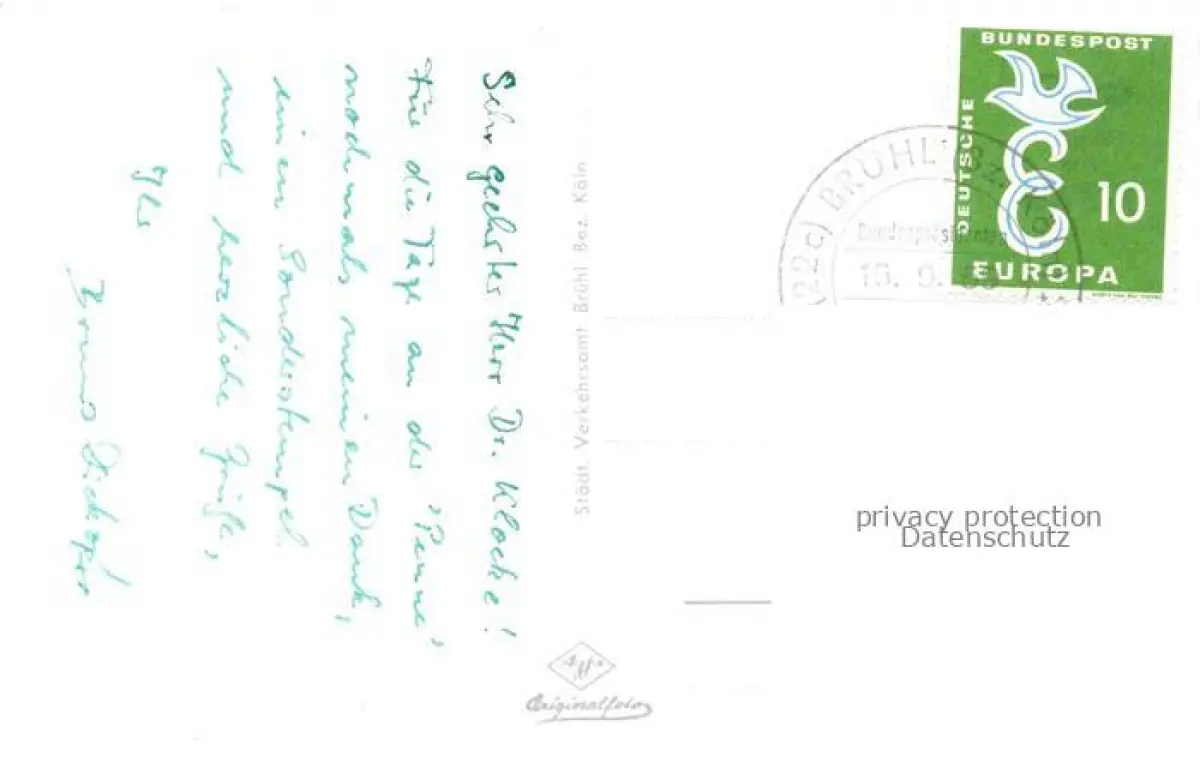 Sehr geehrter Herr Dr. Klocke!
Für die Tage an der "Penne"
nochmals meinen Dank,
einen Sonderstempel
und herzliche Grüße,
Ihr
Bruno
Städt. Verkehrsamt Brühl Bez. Köln
Originalfoto
DEUTSCHE
BUNDESPOST
10
EUROPA
(22c) BRÜHL (BZ KÖLN)
15. 9. 58
privacy protection
Datenschutz